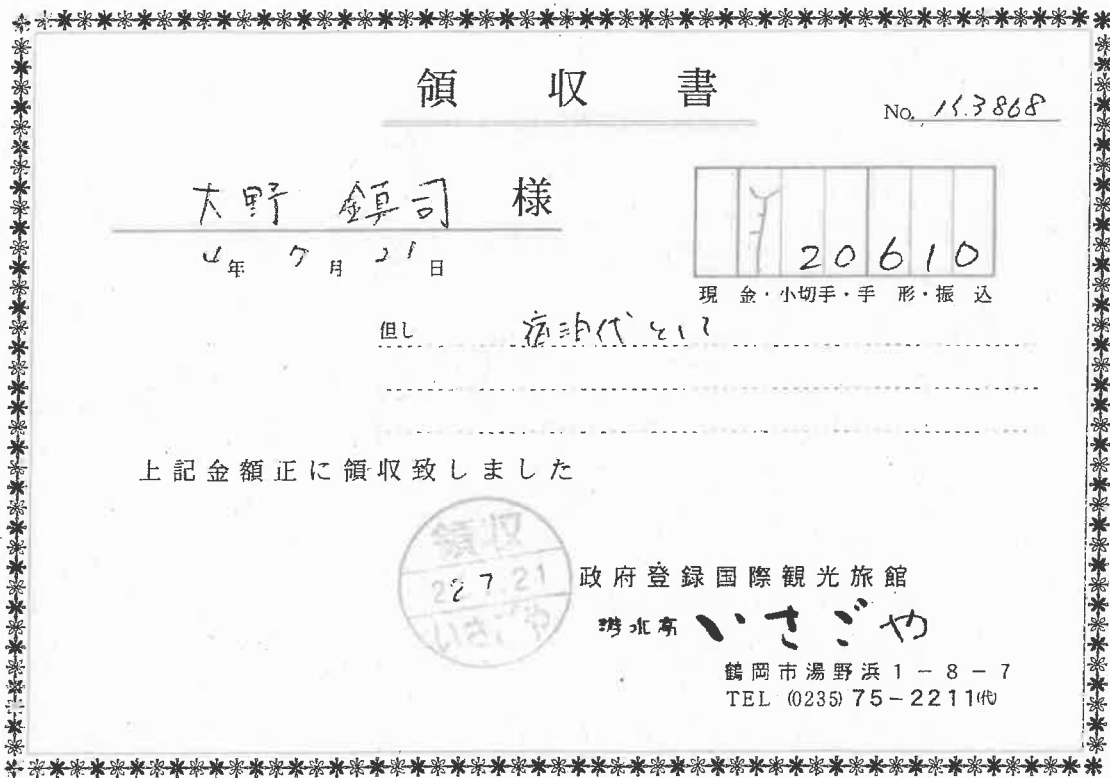 領収書
No. 153868
大野 鎮司 様
4年 7月 21日
¥20610
現金・小切手・手形・振込
但し 宿泊代として
上記金額正に領収致しました
領収
22.7.21
いさごや
政府登録国際観光旅館
游水亭 いさごや
鶴岡市湯野浜1-8-7
TEL (0235) 75-2211(代)